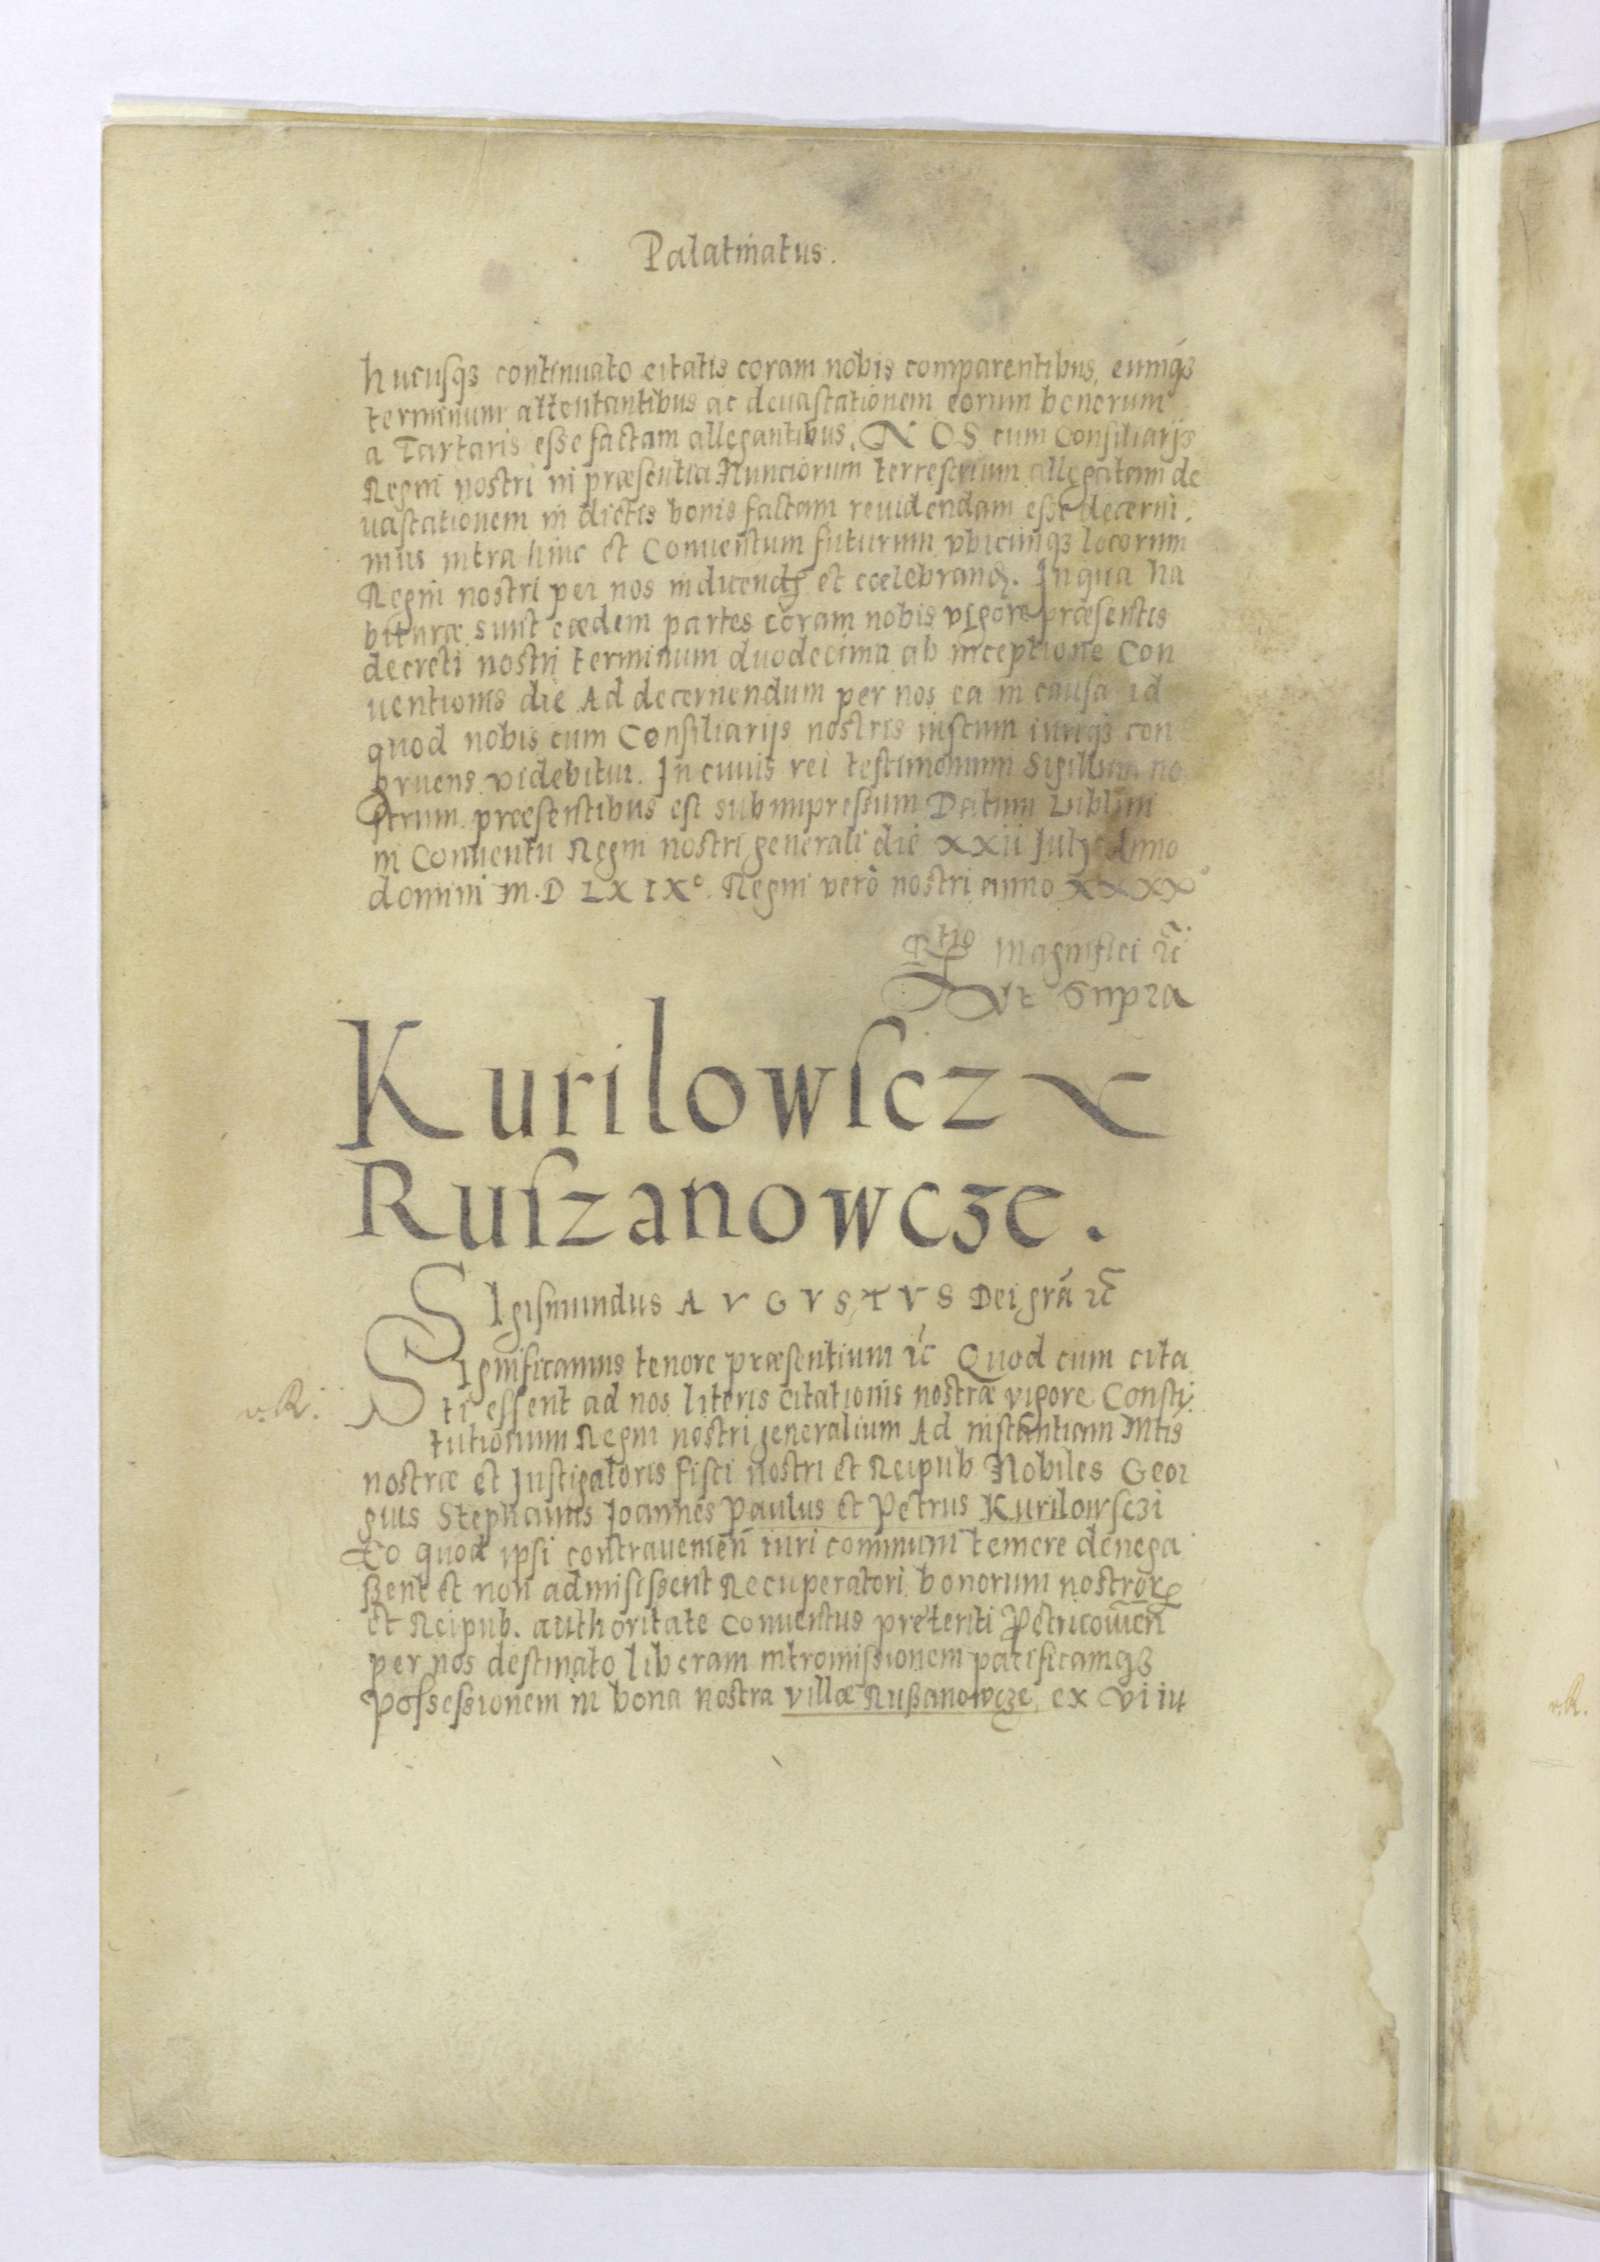 Palatinatus.
hucusqȝ continuato citatis coram nobis comparentibus, eumqȝ
terminum attentantibus ac deuastationem eorum bonorum
a Tartaris esse factam allegantibus, NOS cum Consiliarijs
Regni nostri in præsentia Nunciorum terrestrium allegatam de
uastationem in dictis bonis factam reuidendam esse decerni
mus intra hinc et Conuentum futurum vbicunqȝ locorum
Regni nostri per nos inducend et cœlebrand. In qua ha
bituræ sunt eædem partes coram nobis vigore præsentis
decreti nostri terminum duodecima ab inceptione Con
uentionis die Ad decernendum per nos ea in causa id
quod nobis cum Consiliarijs nostris iustum iuriqȝ con
gruens videbitur. In cuius rei testimonium Sigillum no
strum præsentibus est subimpressum Datum Lublini
in Conuentu Regni nostri generali die XXII Julij Anno
domini M.D LXIXº. Regni verò nostri anno XXXXº
Rtio Magnifici ꝛc̃
Vt Supra
Kurilowscz
Ruszanowcze.
SIgismundus AVGVSTVS Dei grã ꝛc̃
SIgnificamus tenore præsentium ꝛc Quod cum cita
v. R. ti essent ad nos literis citationis nostræ vigore Consti
tutionum Regni nostri generalium Ad instantiam Mtis
nostræ et Instigatoris fisci nostri et Reipub Nobiles Geor
gius Stephanus Joannes Paulus et Petrus Kurilowsczi
Eo quod ipsi contrauenien̄ iuri communi temere denega
ssent et non admisissent Recuperatori bonorum nostrorꝝ
et Reipub. authoritate Conuentus preteriti Petricouien̄
per nos destinato liberam intromissionem pacificamqȝ
possessionem in bona nostra villæ Rußanowcze, ex vi iu
v. R.